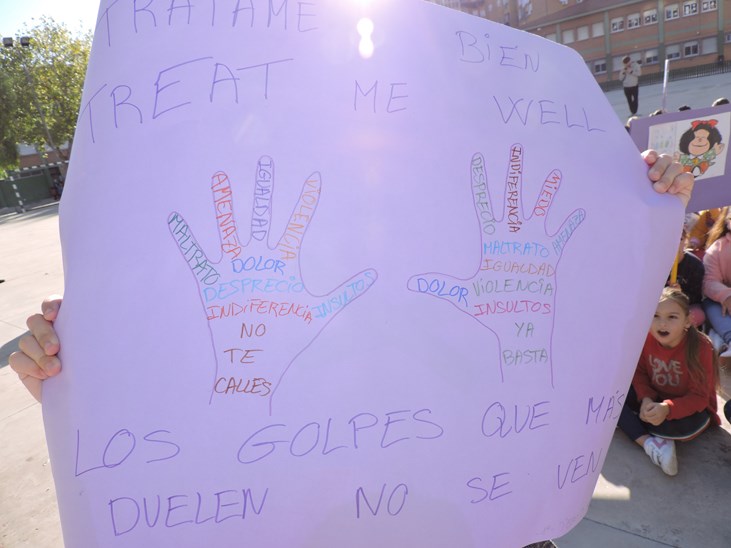 TRÁTAME BIEN
TREAT ME WELL
MALTRATO
AMENAZA
IGUALDAD
VIOLENCIA
DOLOR
DESPRECIO
INDIFERENCIA
INSULTOS
NO
TE
CALLES
DESPRECIO
INDIFERENCIA
MIEDO
AMENAZA
MALTRATO
IGUALDAD
DOLOR
VIOLENCIA
INSULTOS
YA
BASTA
LOS GOLPES QUE MÁS
DUELEN NO SE VEN
LOVE
YOU